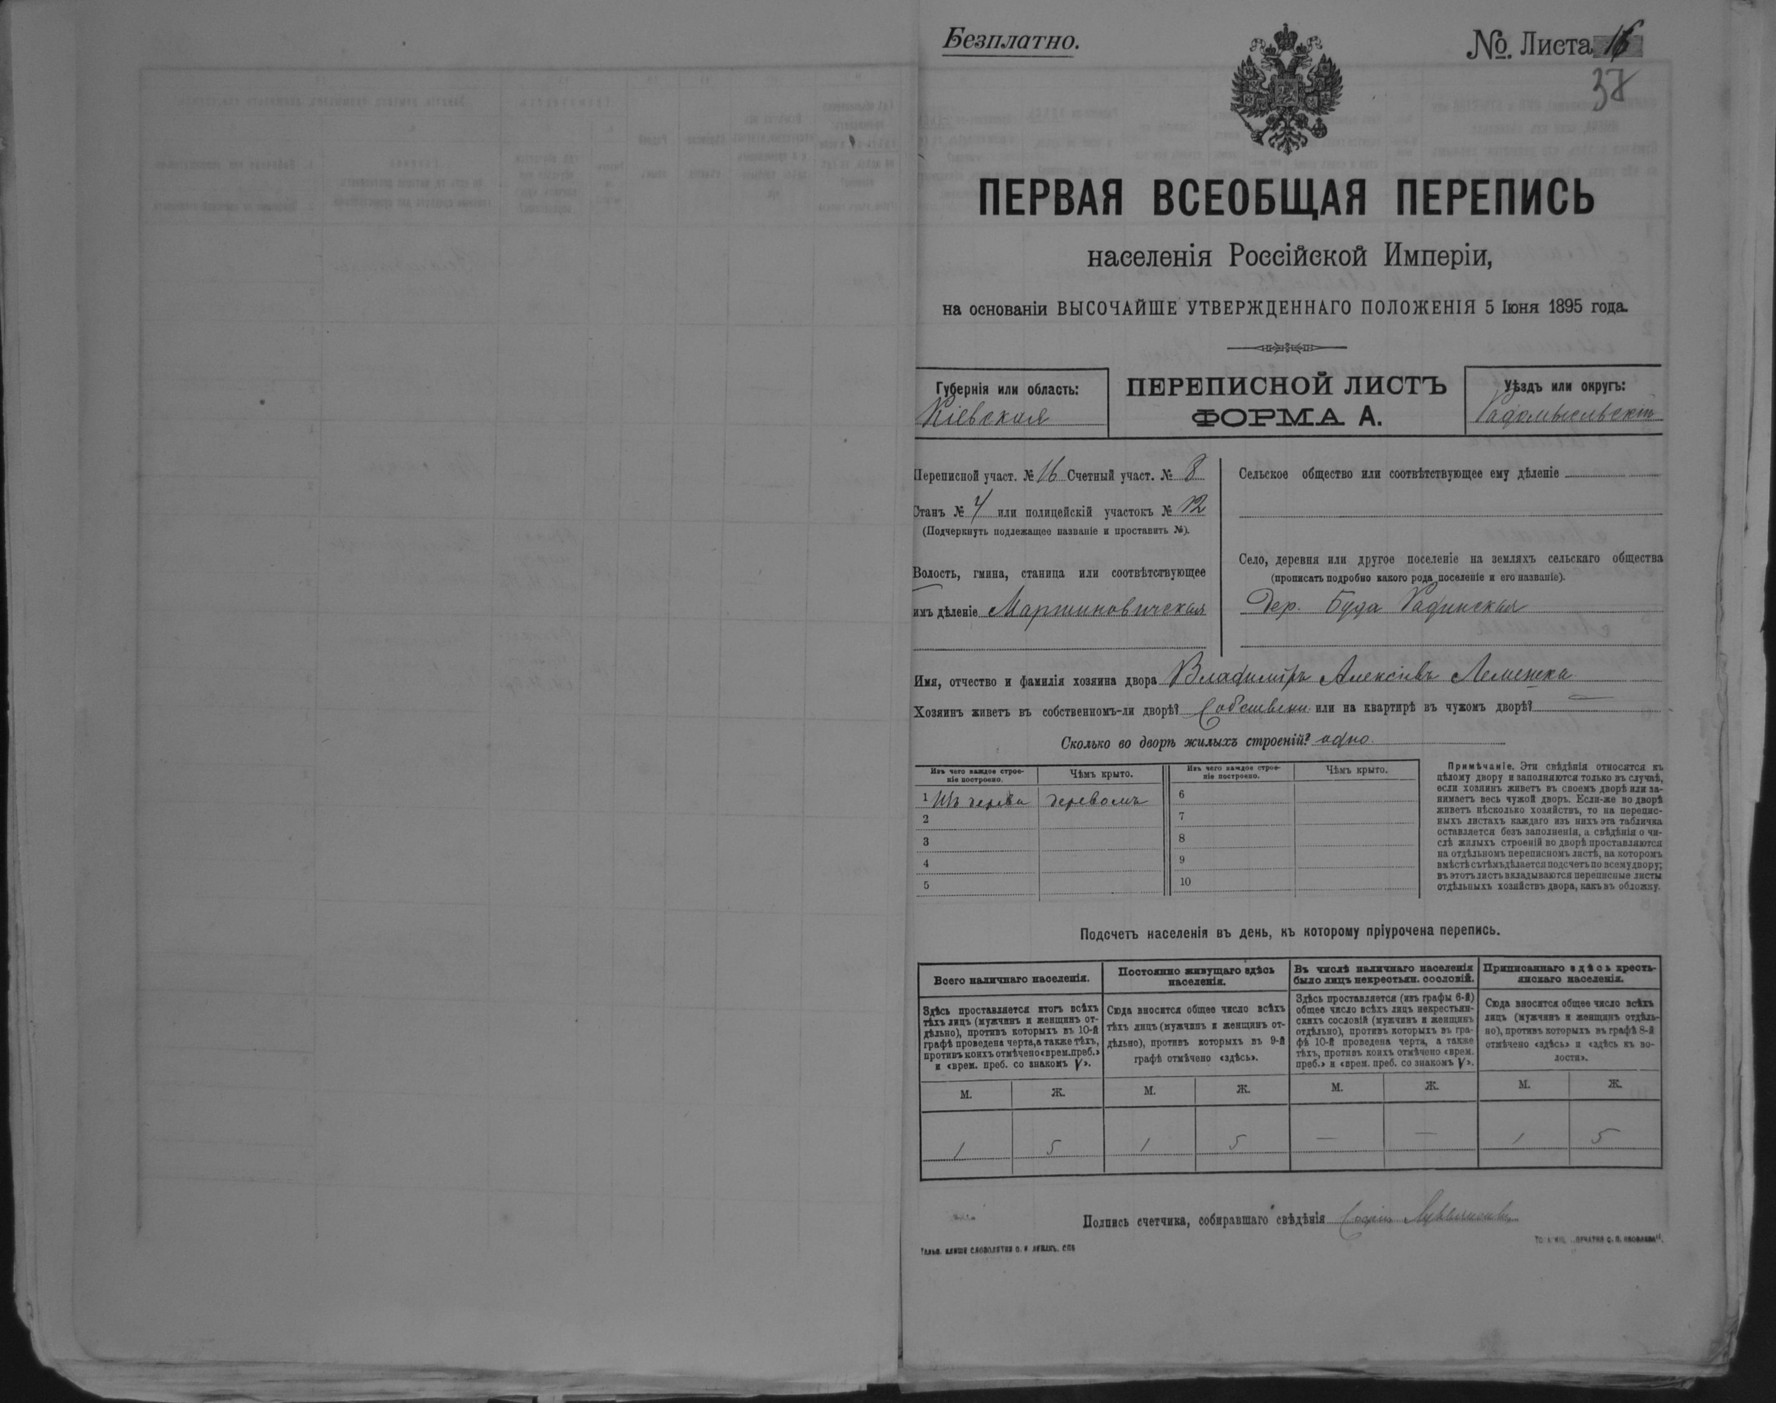 Безплатно.
№. Листа 16
37
ПЕРВАЯ ВСЕОБЩАЯ ПЕРЕПИСЬ
населенія Россійской Имперіи,
на основаніи ВЫСОЧАЙШЕ УТВЕРЖДЕННАГО ПОЛОЖЕНІЯ 5 Іюня 1895 года.
Губернія или область:
Кіевская
ПЕРЕПИСНОЙ ЛИСТЪ
ФОРМА А.
Уѣздъ или округъ:
Радомысльскій
Переписной участ. № 16 Счетный участ. № 8
Станъ № 4 или полицейскій участокъ № 12
(Подчеркнуть подлежащее названіе и проставить №).
Волость, гмина, станица или соотвѣтствующее
имъ дѣленіе Мартиновичская
Сельское общество или соотвѣтствующее ему дѣленіе
Село, деревня или другое поселеніе на земляхъ сельскаго общества
(прописать подробно какого рода поселеніе и его названіе).
Дер. Буда Радинская
Имя, отчество и фамилія хозяина двора Владиміръ Алексіевъ Лемешка
Хозяинъ живетъ въ собственномъ-ли дворѣ? Собствени или на квартирѣ въ чужомъ дворѣ? —
Сколько во дворѣ жилыхъ строеній? одно
Изъ чего каждое строе-
ніе построено.
Чѣмъ крыто.
Изъ чего каждое строе-
ніе построено.
Чѣмъ крыто.
1 Изъ дерева деревомъ 6
2 7
3 8
4 9
5 10
Примѣчаніе. Эти свѣдѣнія относятся къ
цѣлому двору и заполняются только въ случаѣ,
если хозяинъ живетъ въ своемъ дворѣ или за-
нимаетъ весь чужой дворъ. Если-же во дворѣ
живетъ нѣсколько хозяйствъ, то на перепис-
ныхъ листахъ каждаго изъ нихъ эта табличка
оставляется безъ заполненія, а свѣдѣнія о чи-
слѣ жилыхъ строеній во дворѣ проставляются
на отдѣльномъ переписномъ листѣ, на которомъ
вмѣстѣ съ тѣмъ дѣлается подсчетъ по всему двору;
въ этотъ листъ вкладываются переписные листы
отдѣльныхъ хозяйствъ двора, какъ въ обложку.
Подсчетъ населенія въ день, къ которому пріурочена перепись.
Всего наличнаго населенія.
Здѣсь проставляется итогъ всѣхъ
тѣхъ лицъ (мужчинъ и женщинъ от-
дѣльно), противъ которыхъ въ 10-й
графѣ проведена черта, а также тѣхъ,
противъ коихъ отмѣчено «врем. преб.»
и «врем. преб. со знакомъ V».
Постоянно живущаго здѣсь
населенія.
Сюда вносится общее число всѣхъ
тѣхъ лицъ (мужчинъ и женщинъ от-
дѣльно), противъ которыхъ въ 9-й
графѣ отмѣчено «здѣсь».
Въ числѣ наличнаго населенія
было лицъ некрестьян. сословій.
Здѣсь проставляется (изъ графы 6-й)
общее число всѣхъ лицъ некрестьян-
скихъ сословій (мужчинъ и женщинъ
отдѣльно), противъ которыхъ въ гра-
фѣ 10-й проведена черта, а также
тѣхъ, противъ коихъ отмѣчено «врем.
преб.» и «врем. преб. со знакомъ V».
Приписаннаго здѣсь кресть-
янскаго населенія.
Сюда вносится общее число всѣхъ
лицъ (мужчинъ и женщинъ отдѣль-
но), противъ которыхъ въ графѣ 8-й
отмѣчено «здѣсь» и «здѣсь къ во-
лости».
М. Ж. М. Ж. М. Ж. М. Ж.
1 5 1 5 — — 1 5
Подпись счетчика, собиравшаго свѣдѣнія